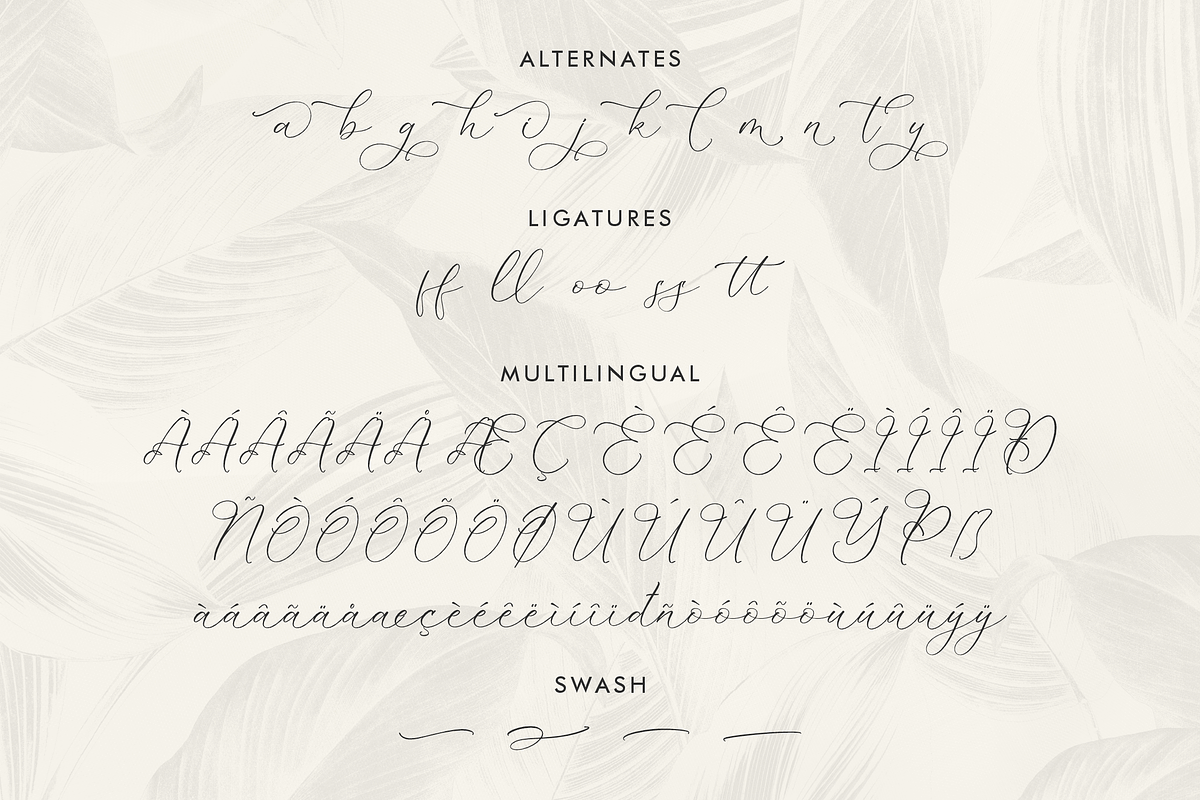 ALTERNATES
a b g h i j k l m n t y
LIGATURES
ff ll oo ss tt
MULTILINGUAL
ÀÁÂÃÄÅ ÆÇÈÉÊËÌÍÎÏÐ
ÑÒÓÔÕÖØÙÚÛÜÝÞß
àáâãäåæçèéêëìíîïđñòóôõöùúûüýÿ
SWASH